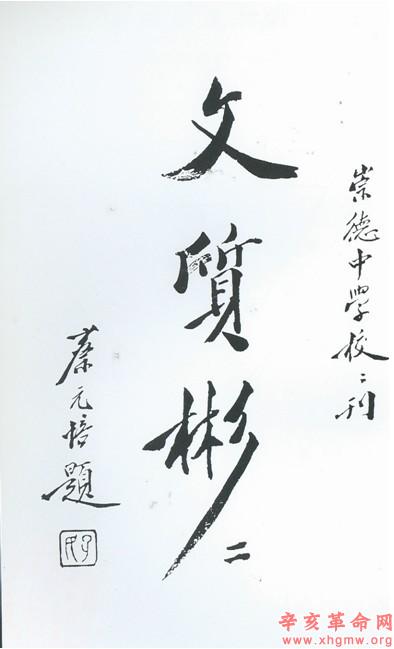 崇德中學校〻刊
文質彬〻
蔡元培題
孑民
辛亥革命网
www.xhgmw.org